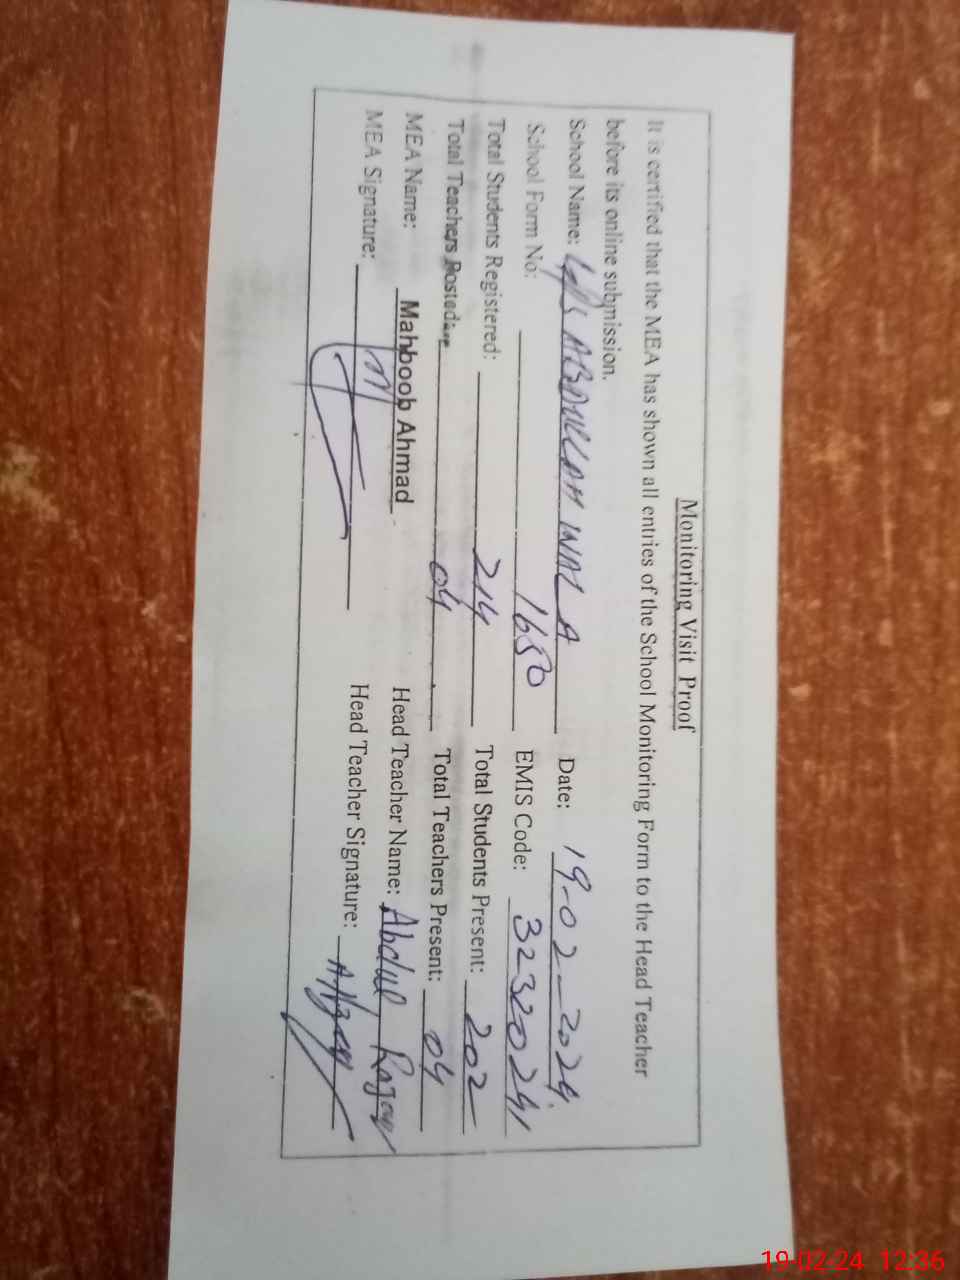 Monitoring Visit Proof
It is certified that the MEA has shown all entries of the School Monitoring Form to the Head Teacher
before its online submission.
School Name: GPS ABDULLAH WALA Date: 19-02-2024
School Form No: 1650 EMIS Code: 32320241
Total Students Registered: 214 Total Students Present: 202
Total Teachers Posted: 04 Total Teachers Present: 04
MEA Name: Mahboob Ahmad Head Teacher Name: Abdul
MEA Signature: Head Teacher Signature:
19-02-24 12:36